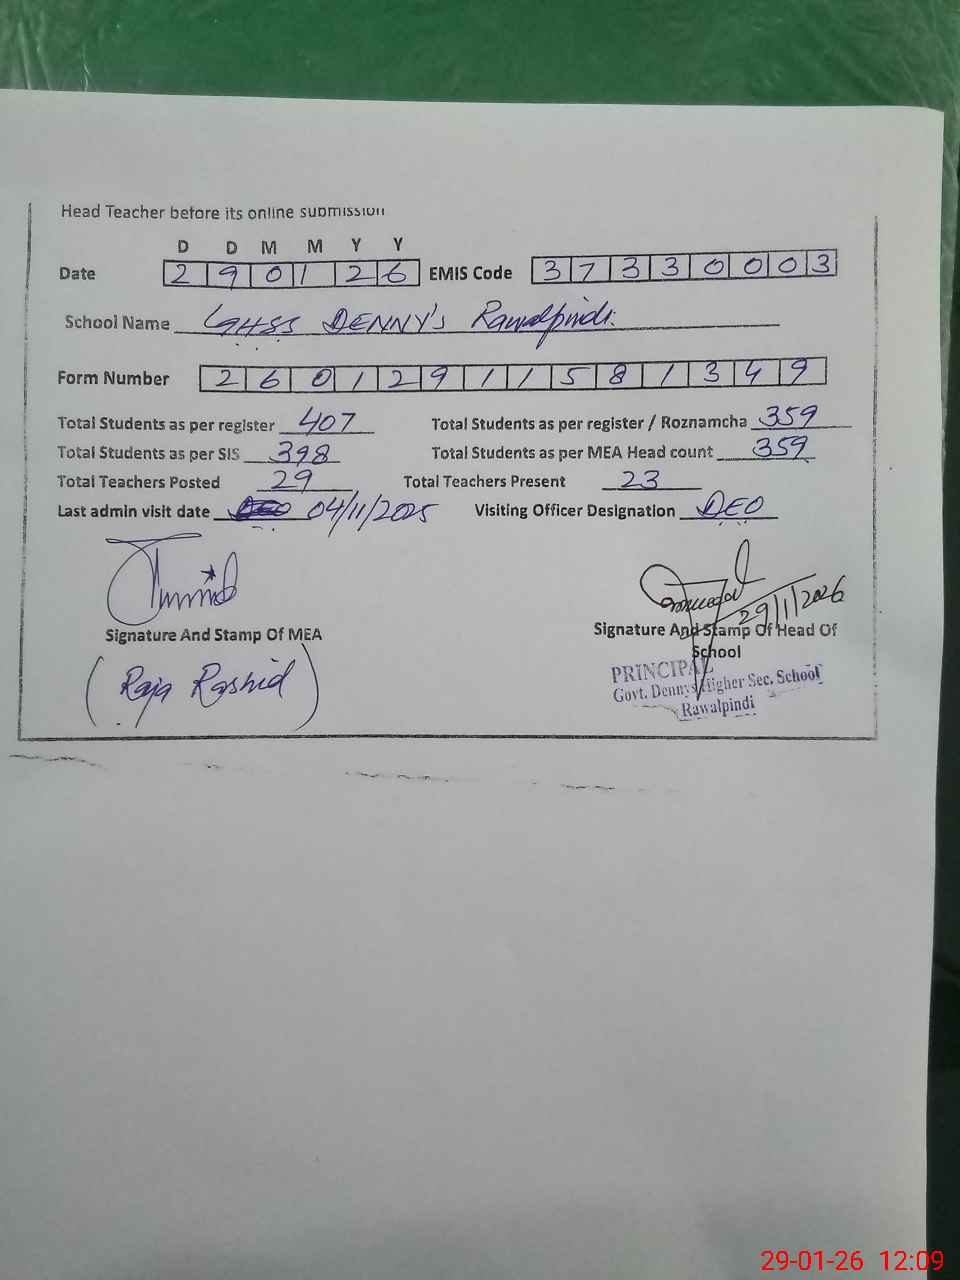 Head Teacher before its online submission
D D M M Y Y
Date 2 9 0 1 2 6 EMIS Code 3 7 3 3 0 0 0 3
School Name GHSS DENNY's Rawalpindi.
Form Number 2 6 0 1 2 9 1 1 5 8 1 3 4 9
Total Students as per register 407 Total Students as per register / Roznamcha 359
Total Students as per SIS 398 Total Students as per MEA Head count 359
Total Teachers Posted 29 Total Teachers Present 23
Last admin visit date 04/11/2025 Visiting Officer Designation DEO
29/1/2026
Signature And Stamp Of MEA Signature And Stamp Of Head Of
School
(Raja Rashid)
PRINCIPAL
Govt. Dennys Higher Sec. School
Rawalpindi
29-01-26 12:09